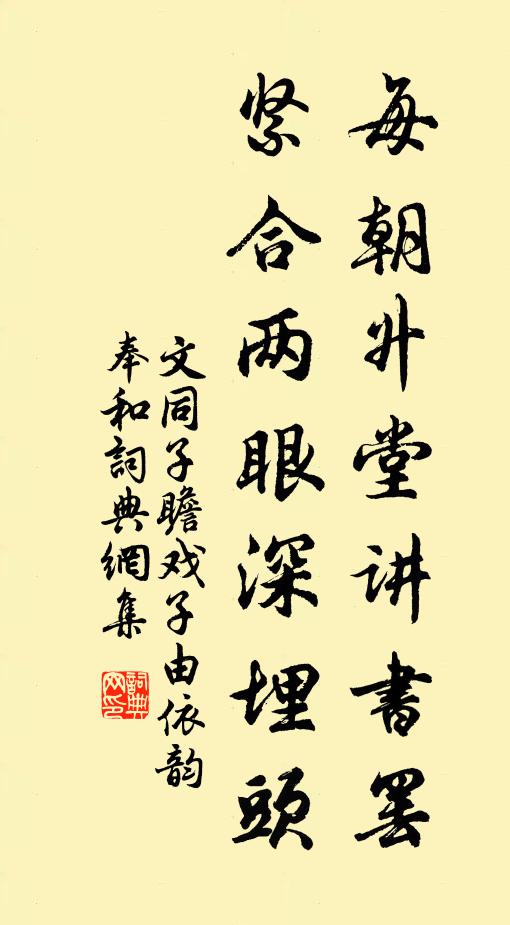 每朝升堂讲書罢
紧合两眼深埋頭
文同子瞻戏子由依韵
奉和詞典網集
詞典网印